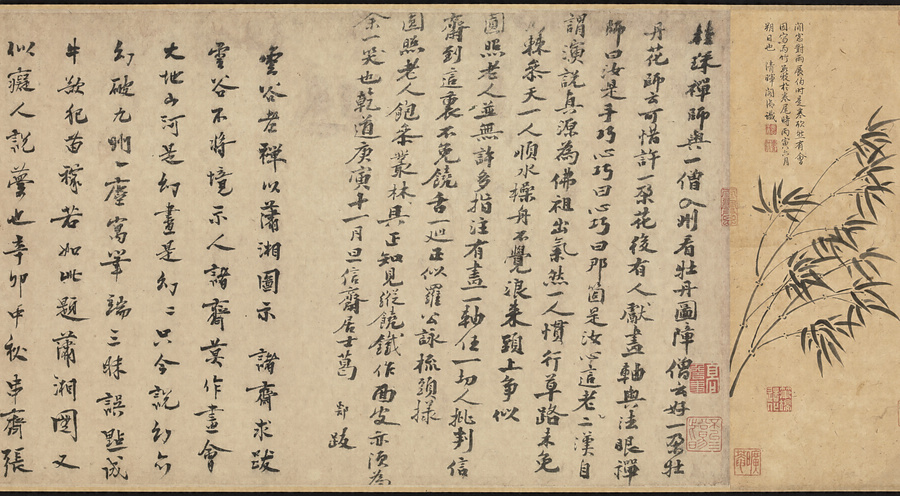 閒窗對雨展伯時是卷欣然有會
因寫風竹 於卷尾時丙寅六月
朔日也 清暉閣 識
桂琛禪師與一僧入州看牡丹圖障僧云好一朶牡
丹花師云可惜許一朶花後有人獻畫軸與法眼禪
師曰汝是手巧心巧曰心巧曰那箇是汝心這老二漢自
謂演說真源為佛祖出氣然一人慣行草路未免
棘參天一人順水操舟不覺浪來頭上爭似
圓照老人並無許多指注有畫一軸任一切人批判信
齋到這裏不免饒舌一廵正似羅公詠梳頭樣
圓照老人飽參叢林具正知見縱饒鐵作面皮亦須為
余一哭也乾道庚寅十一月旦信齋居士葛 郯 跋
雲谷老禪以瀟湘圖示 諸齋求跋
雲谷不將境示人諸齋莫作畫會
大地山河是幻畫是幻幻只今說幻亦
幻破九州一塵寓筆端三昧誤點成
牛欲犯苗稼若如此題瀟湘圖又
似癡人說夢也辛卯中秋 齋張